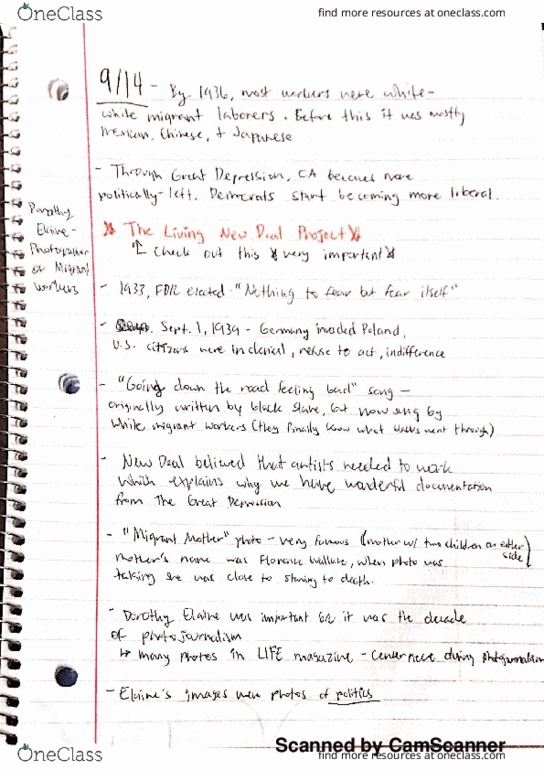 OneClass
find more resources at oneclass.com
9/14 - By 1936, most workers were white-
white migrant laborers. Before this it was mostly
Mexican, Chinese, + Japanese
- Through Great Depression, CA becomes more
politically-left. Democrats start becoming more liberal.
Dorothy
Elaine -
Photographer
of Migrant
workers
The Living New Deal Project
check out this very important
- 1933, FDR elected - "Nothing to fear but fear itself"
- Sept. 1, 1939 - Germany invaded Poland,
U.S. citizens were in denial, refuse to act, indifference
- "Going down the road feeling bad" song -
originally written by black slave, but now sung by
white migrant workers (they finally know what blacks went through)
- New Deal believed that artists needed to work
which explains why we have wonderful documentation
from The Great Depression
- "Migrant Mother" photo - very famous (mother w/ two children on either side)
mother's name was Florence, when photo was
taking she was close to starving to death.
- Dorothy Elaine was important b/c it was the decade
of photojournalism
↳ many photos in LIFE magazine - during photojournalism
- Elaine's images were photos of politics
Scanned by CamScanner
OneClass
find more resources at oneclass.com